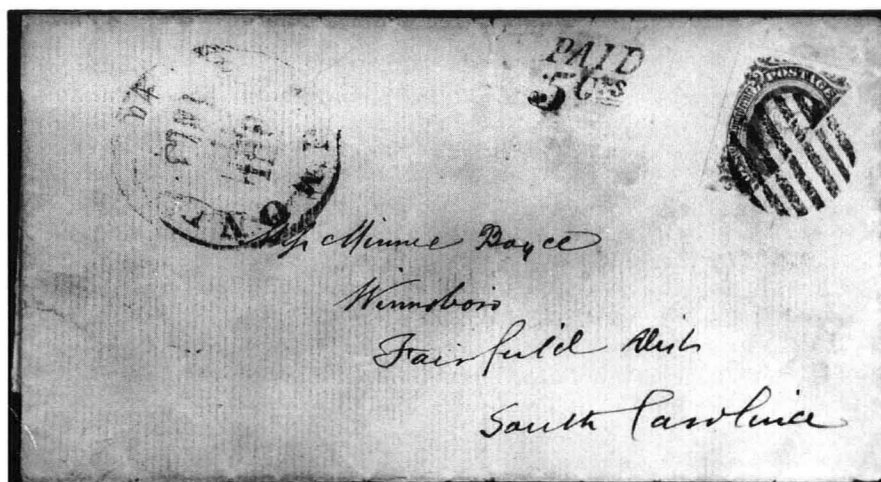 PAID
5 Cts
POSTAGE
Miss Minnie Boyce
Winnsboro
Fairfield Dist
South Carolina